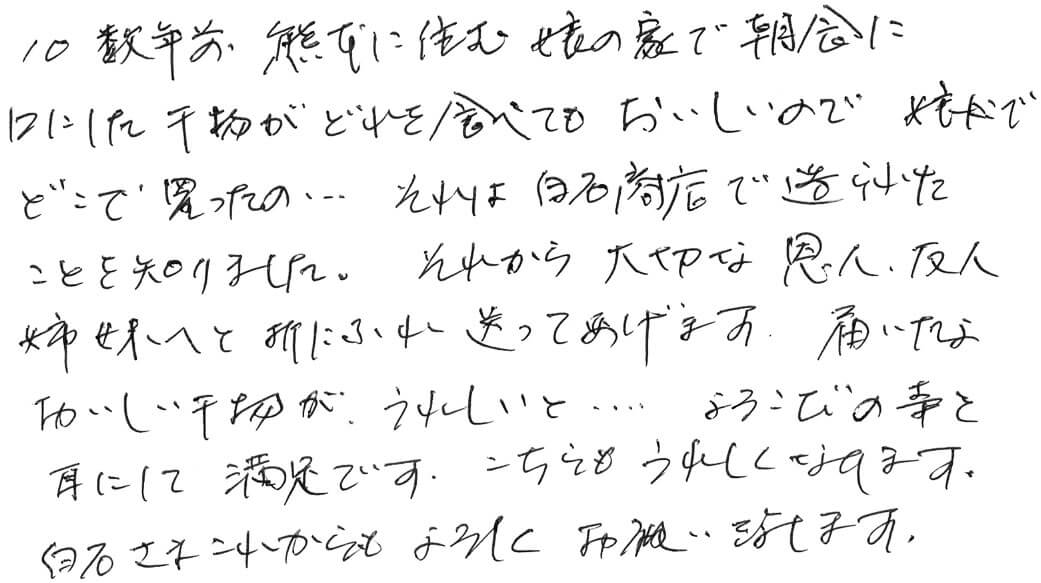 10数年前、熊本に住む娘の家で朝食に
口にした干物がどれを食べてもおいしいので 娘に
どこで買ったの… それは白石商店で造られた
ことを知りました。 それから大切な恩人、友人
姉妹へと折にふれ送ってあげます。 届いたよ
おいしい干物が、うれしいと…. よろこびの声を
耳にして満足です。こちらもうれしくなります。
白石さまこれからもよろしくお願い致します。